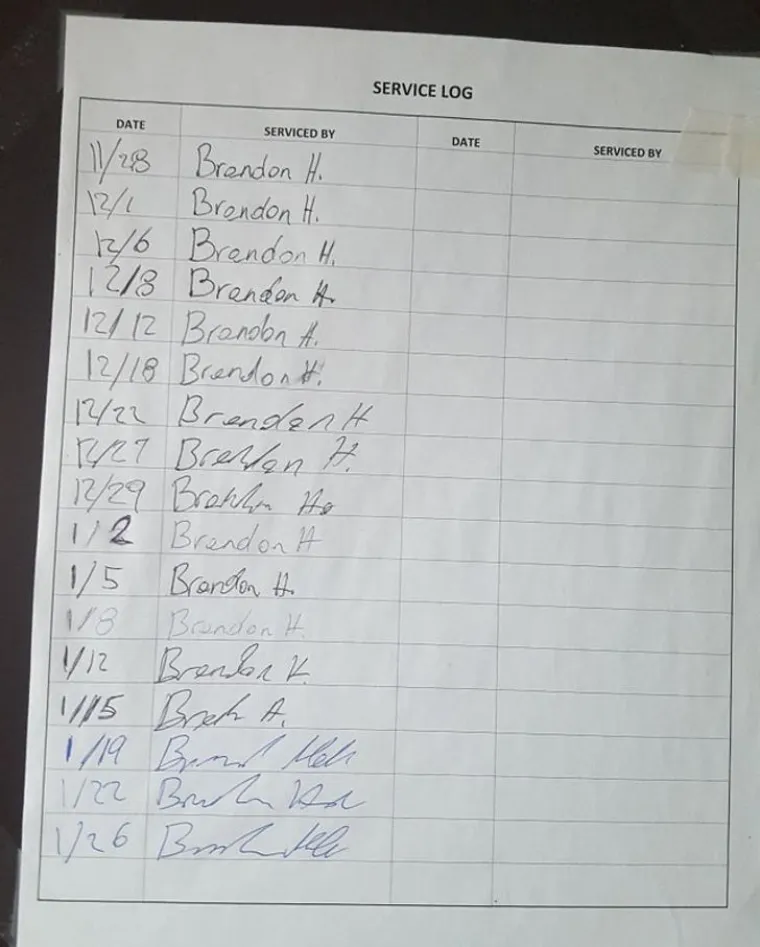 SERVICE LOG
DATE SERVICED BY DATE SERVICED BY
11/28 Brandon H.
12/1 Brandon H.
12/6 Brandon H.
12/8 Brandon H.
12/12 Brandon H.
12/18 Brandon H.
12/22 Brandon H
12/27 Brandon H.
12/29 Brandon
1/2 Brandon H
1/5 Brandon H.
1/8 Brandon H.
1/12 Brandon H.
1/15
1/19
1/22
1/26